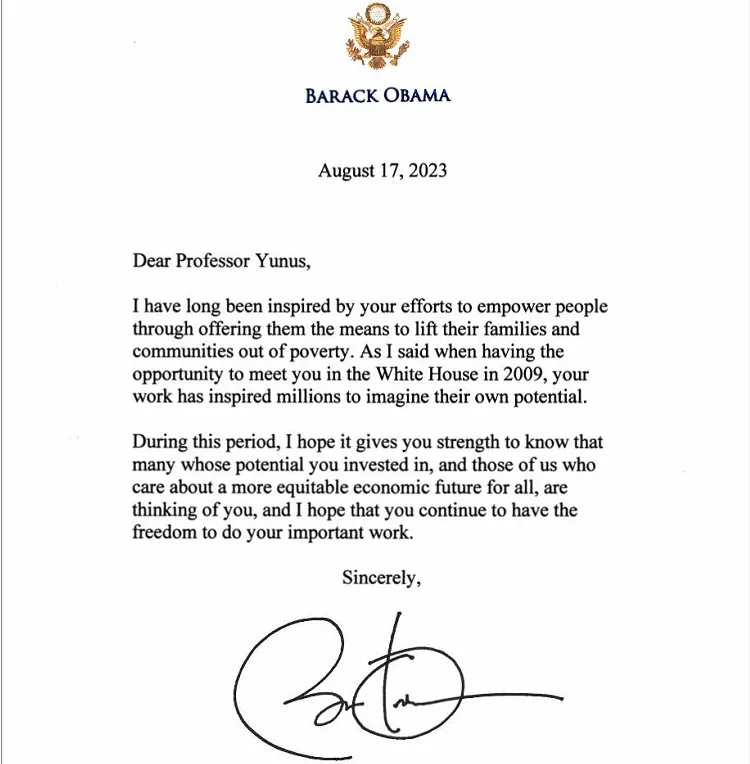 BARACK OBAMA
August 17, 2023
Dear Professor Yunus,
I have long been inspired by your efforts to empower people
through offering them the means to lift their families and
communities out of poverty. As I said when having the
opportunity to meet you in the White House in 2009, your
work has inspired millions to imagine their own potential.
During this period, I hope it gives you strength to know that
many whose potential you invested in, and those of us who
care about a more equitable economic future for all, are
thinking of you, and I hope that you continue to have the
freedom to do your important work.
Sincerely,